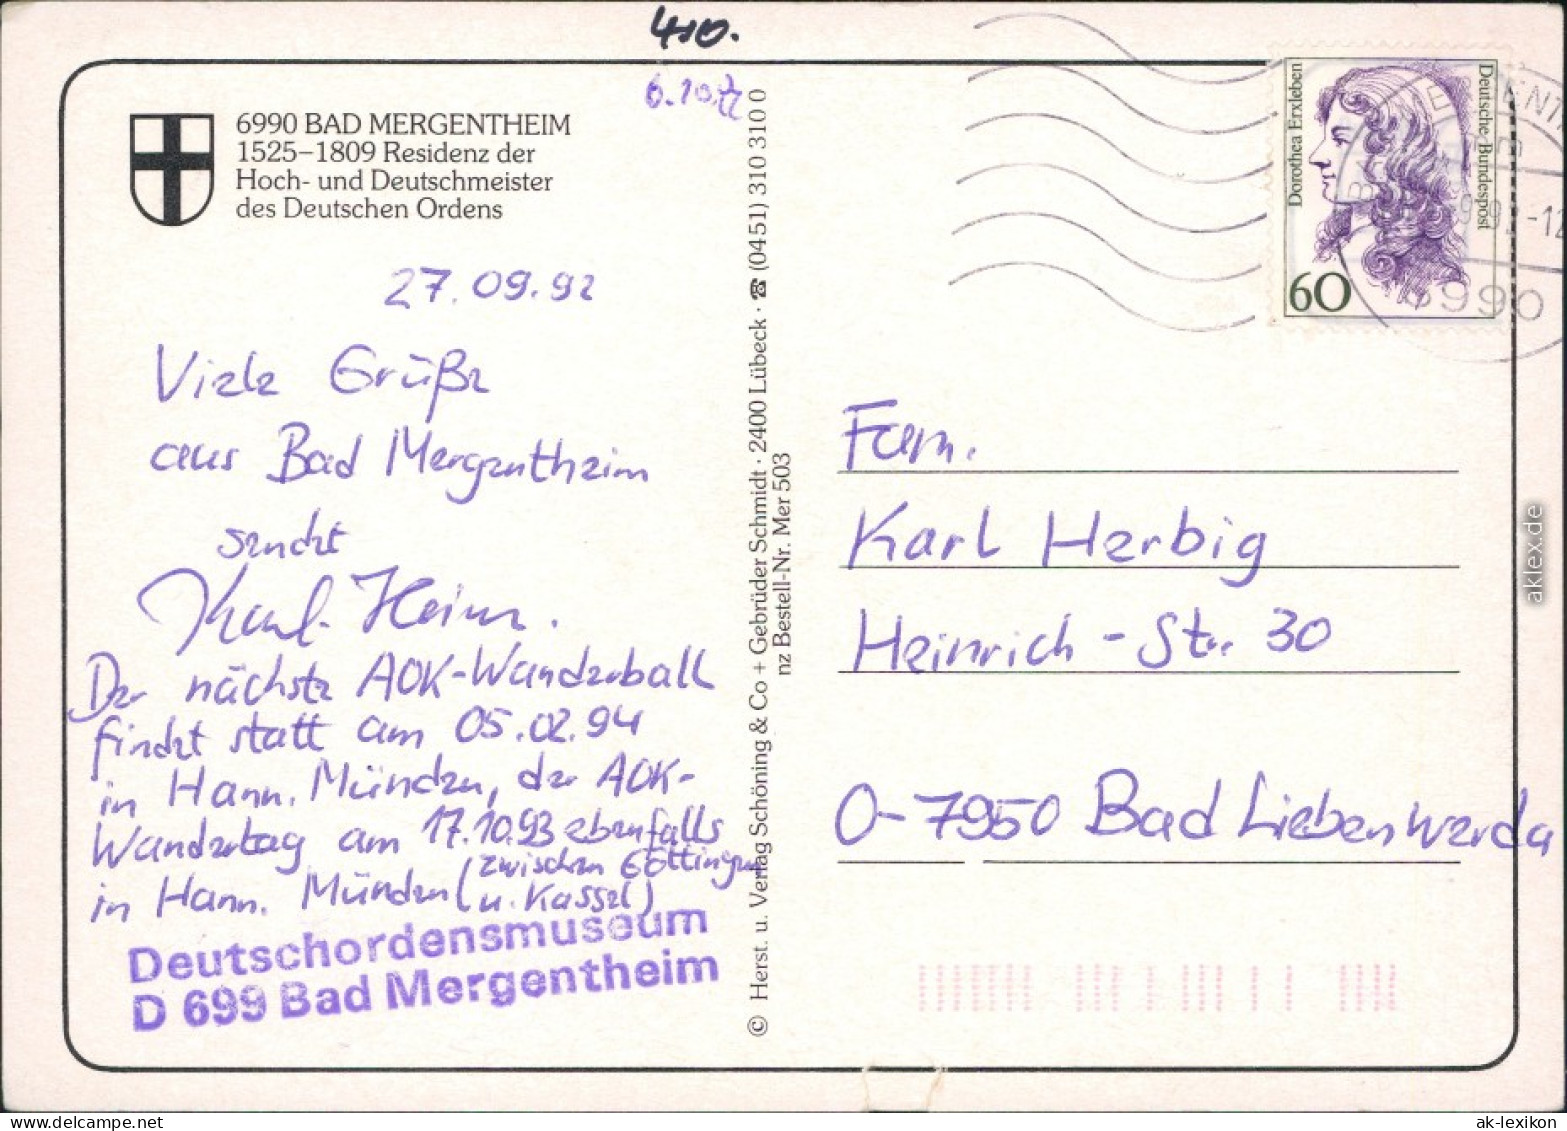 410.
6.10.
6990 BAD MERGENTHEIM
1525–1809 Residenz der
Hoch- und Deutschmeister
des Deutschen Ordens
27.09.92
Viele Grüße
aus Bad Mergentheim
sendet
Karl-Heinz.
Der nächste AOK-Wanderball
findet statt am 05.02.94
in Hann. Münden, der AOK-
Wandertag am 17.10.93 ebenfalls
in Hann. Münden (zwischen Göttingen
u. Kassel)
Deutschordensmuseum
D 699 Bad Mergentheim
© Herst. u. Verlag Schöning & Co + Gebrüder Schmidt · 2400 Lübeck · ☎ (0451) 310 310 0
nz Bestell-Nr. Mer 503
Dorothea Erxleben
Deutsche Bundespost
60
6990
Fam.
Karl Herbig
Heinrich-Str. 30
O-7950 Bad Liebenwerda
aklex.de
www.delcampe.net
ak-lexikon